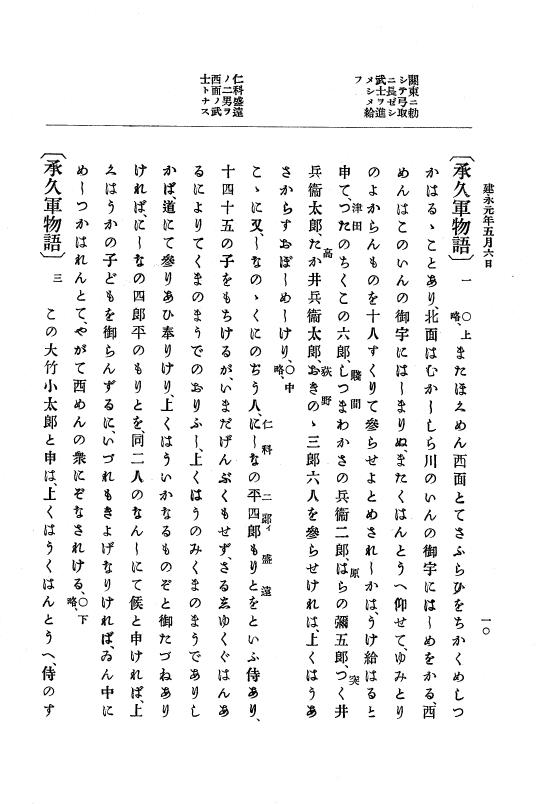 建永元年五月六日
一〇
關東ニ勅
シテ弓取
ニ長ゼシ
武士ヲ進
メシメ給
フ
仁科盛遠
ノ二男ヲ
西面ノ武
士トナス
〔承久軍物語〕 一 〇上略、またほくめん西面とてさふらひをちかくめしつ
かはるゝことあり、北面はむかしゝら川のいんの御宇にはしめをかる、西
めんはこのいんの御宇にはしまりぬ、またくはんとうへ仰せて、ゆみとり
のよからんものを十人すくりて參らせよとめされしかは、うけ給はると
申て、つたのちくこの六郎、しつまわかさの兵衞二郎、はらの彌五郎、つく井
津田
賤間
原
突
兵衞太郎、たか井兵衞太郎、おきのゝ三郎六人を參らせけれは、上くはうあ
高
荻野
さからすおほしめしけり、〇中略、
こゝに又、しなのゝくにのぢう人、にしなの平四郎もりとをといふ侍あり、
仁科
二郎イ
盛遠
十四十五の子をもちけるが、いまだげんぷくもせず、さるゑゆくぐはんあ
るによりてくまのまうでのおりふし、上くはうのみくまのまうでありし
かば、道にて參りあひ奉りけり、上くはういかなるものぞと御たづねあり
ければ、にしなの四郎平のもりとを、同二人のなんしにて候と申ければ、上
くはうかの子どもを御らんずるに、いづれもきよげなりければ、ゐん中に
めしつかはれんとて、やがて西めんの衆にぞなされける、〇下略、
〔承久軍物語〕 三 この大竹小太郎と申は、上くはうくはんとうへ、侍のす